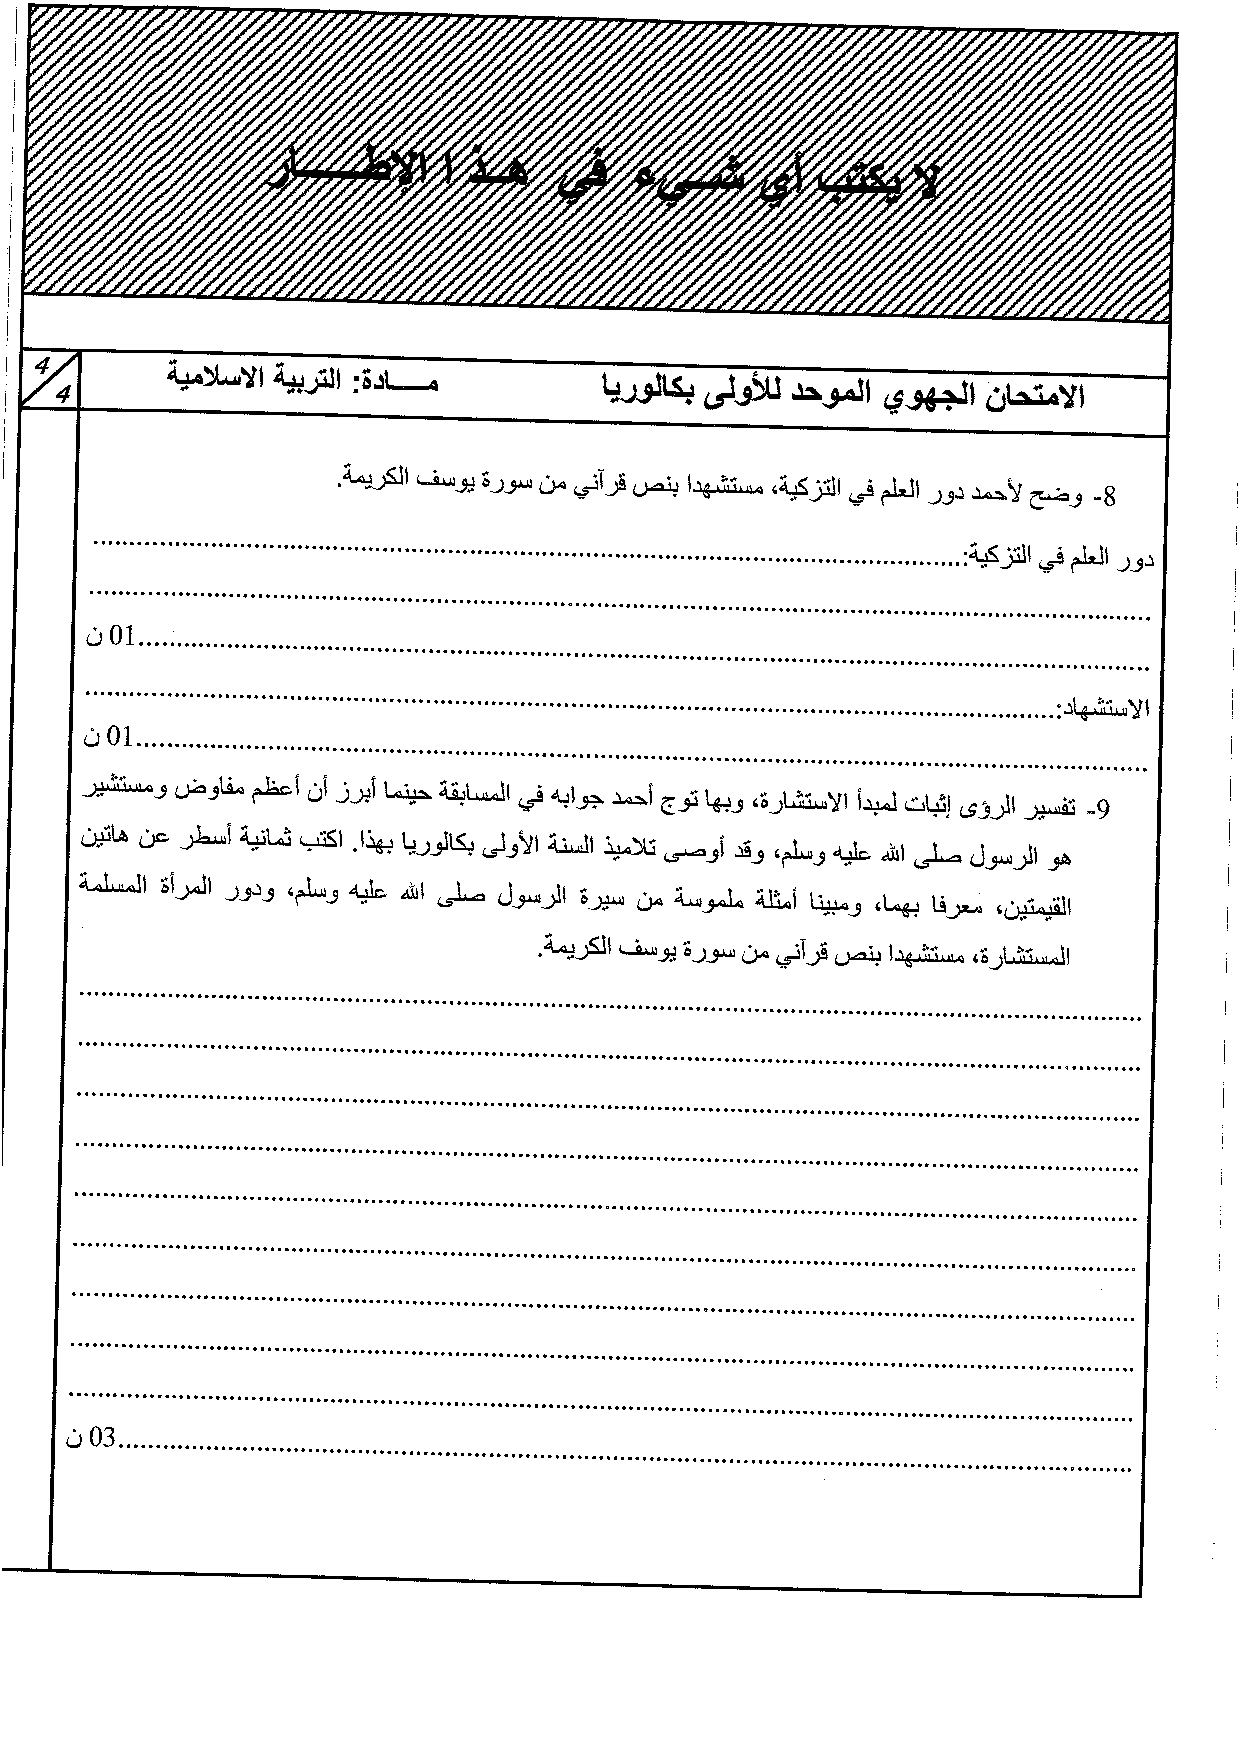 لا يكتب أي شيء في هذا الإطار
الامتحان الجهوي الموحد للأولى بكالوريا
مادة: التربية الاسلامية
4/4
8- وضح لأحمد دور العلم في التزكية، مستشهدا بنص قرآني من سورة يوسف الكريمة.
دور العلم في التزكية:..........
..........
..........01 ن
الاستشهاد:..........
..........01 ن
9- تفسير الرؤى إثبات لمبدأ الاستشارة، وبها توج أحمد جوابه في المسابقة حينما أبرز أن أعظم مفاوض ومستشير
هو الرسول صلى الله عليه وسلم، وقد أوصى تلاميذ السنة الأولى بكالوريا بهذا. اكتب ثمانية أسطر عن هاتين
القيمتين، معرفا بهما، ومبينا أمثلة ملموسة من سيرة الرسول صلى الله عليه وسلم، ودور المرأة المسلمة
المستشارة، مستشهدا بنص قرآني من سورة يوسف الكريمة.
..........
..........
..........
..........
..........
..........
..........
..........
..........
..........03 ن